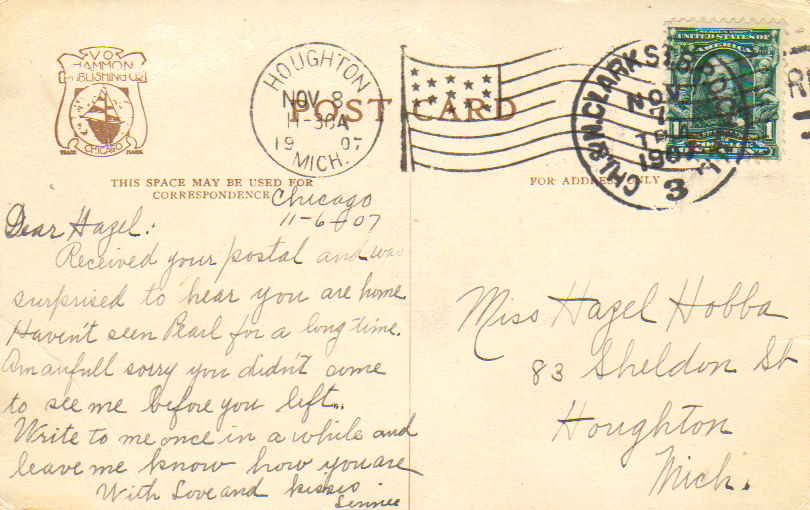 V.O.
HAMMON
PUBLISHING CO.
CHICAGO
TRADE MARK
HOUGHTON
NOV 8
11-30A
19 07
MICH.
POST CARD
CHI. & N. CLARK ST. R.P.O.
NOV
7
190
3
UNITED STATES OF
AMERICA
1 1
THIS SPACE MAY BE USED FOR
CORRESPONDENCE
FOR ADDRESS ONLY
Chicago
11-6-07
Dear Hazel:
Received your postal and was
surprised to hear you are home
Haven't seen Pearl for a long time.
Am aufull sorry you didn't come
to see me before you left..
Write to me once in a while and
leave me know how you are
With Love and kisses
Miss Hazel Hobba
83 Sheldon St
Houghton
Mich.